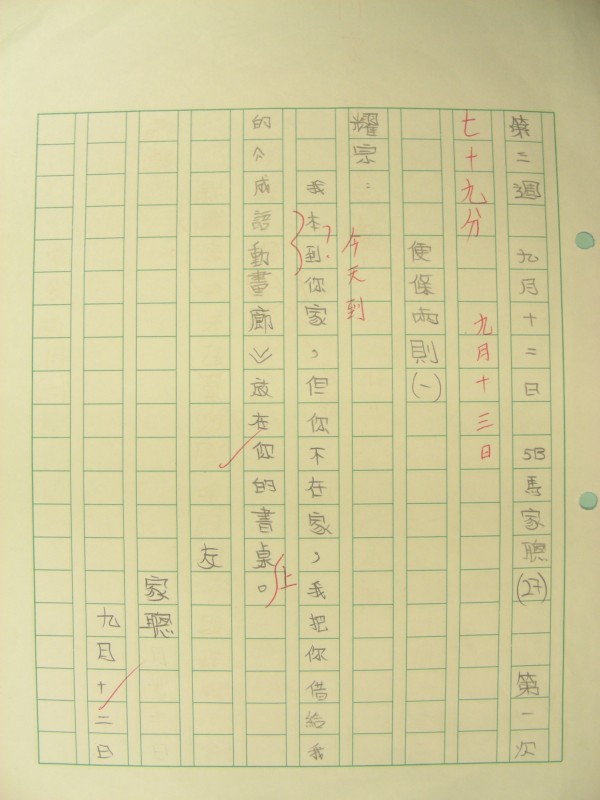 第二週　九月十二日　5B馬家聰(27)　第一次
七十九分　九月十三日
便條兩則(一)
耀宗：
今天到
我本到你家，但你不在家，我把你借給我
？
的《成語動畫廊》放在你的書桌。
上
友
家聰
九月十二日